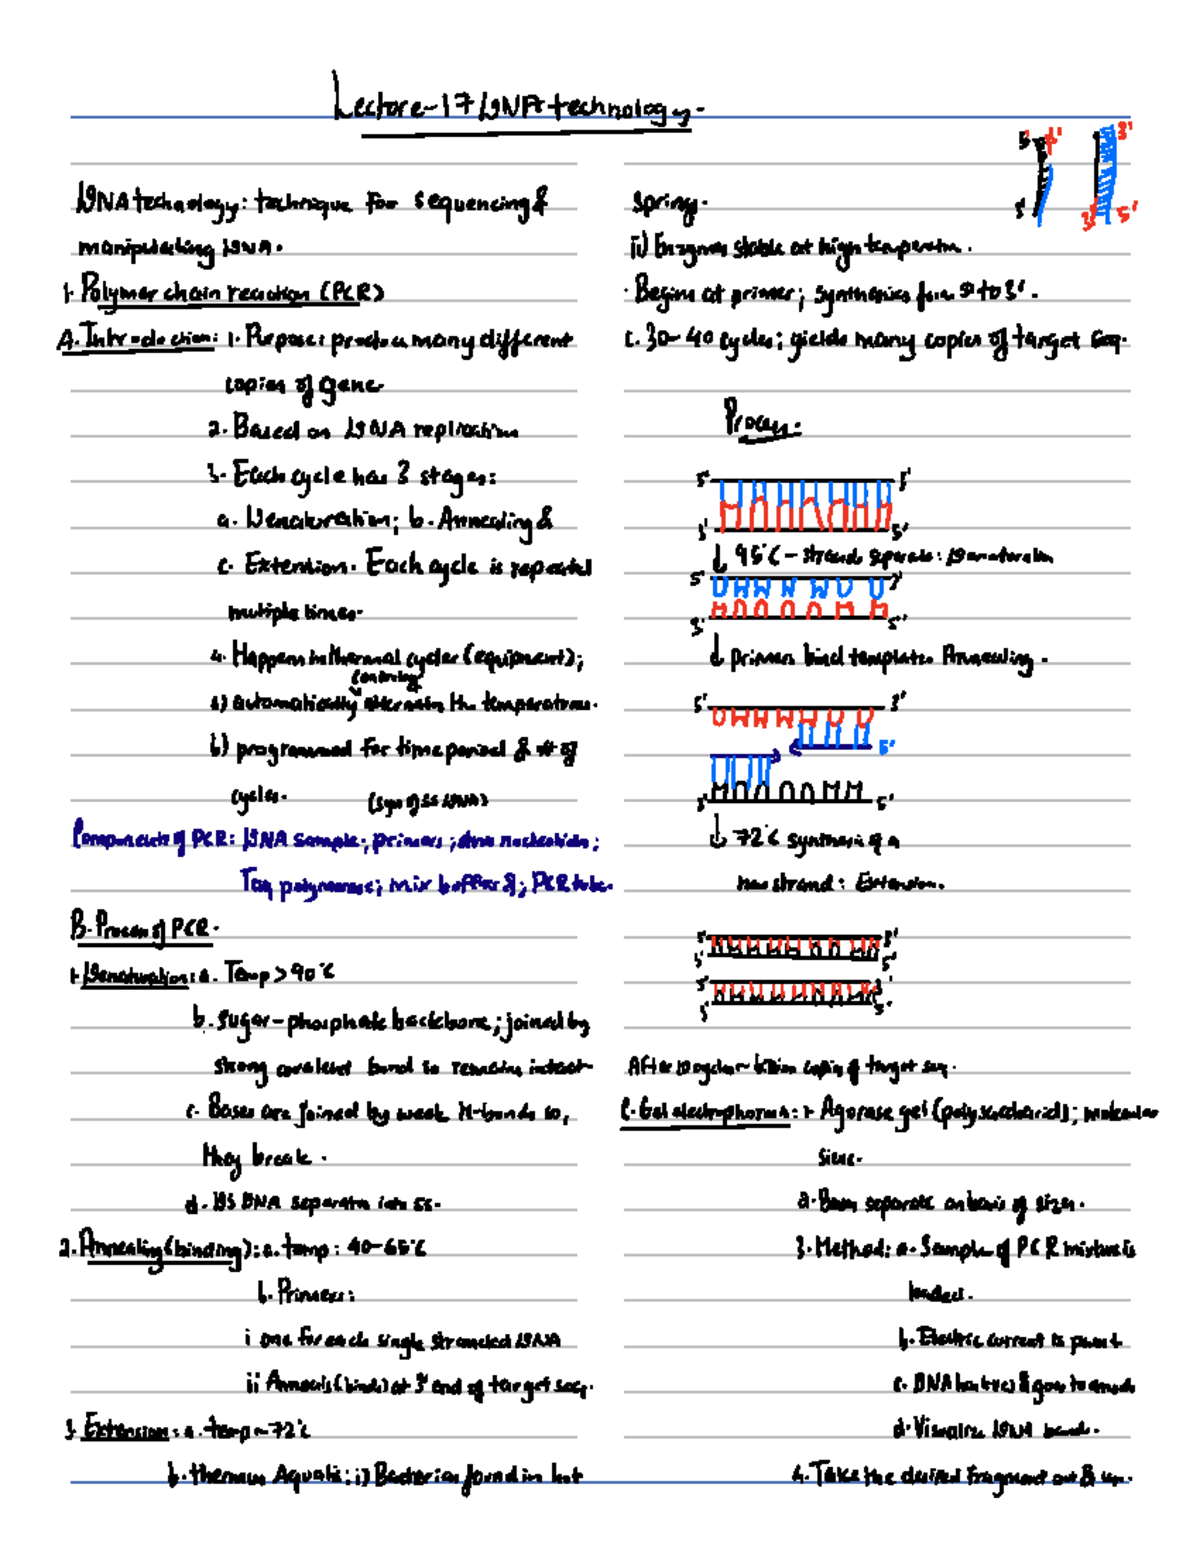 Lecture-17 DNA technology.
DNA technology: technique for sequencing &
manipulating DNA.
1. Polymer chain reaction (PCR)
A. Introduction: 1. Purpose: produce many different
copies of gene
2. Based on DNA replication
3. Each cycle has 3 stages:
a. Denaturation; b. Annealing &
c. Extension. Each cycle is repeated
multiple times.
4. Happens in thermal cycler (equipment);
controlling
a) automatically alternates the temperatures.
b) programmed for time period & # of
cycles. (syn of ss DNA)
Components of PCR: DNA sample; primers; nucleotides;
Taq polymerase; mix buffer; PCR tube.
B. Process of PCR.
1. Denaturation: a. Temp > 90°C
b. Sugar-phosphate backbone; joined by
strong covalent bond so remains intact
c. Bases are joined by weak H-bonds so,
they break.
d. DS DNA separates into ss.
2. Annealing (binding): a. temp: 40-65°C
b. Primers:
i one for each single stranded DNA
ii Anneals (binds) at 3' end of target seq.
3. Extension: a. temp ~ 72°C
b. thermus Aquatic: i) Bacteria found in hot
5' 3'
3' 5'
Spring.
ii) Enzymes stable at high temperature.
Begins at primer; synthesis from 5' to 3'.
c. 30-40 cycles; yields many copies of target seq.
Process.
5' 3'
3' 5'
95°C - strands separate: Denaturation
5' 3'
3' 5'
primers bind template: Annealing.
5' 3'
5'
3' 5'
72°C synthesis of a
new strand: Extension.
5' 3'
3' 5'
5' 3'
3' 5'
After cycles ~ billion copies of target seq.
C. Gel electrophoresis: 1. Agarose gel (polysaccharide); molecular
sieve.
a. separate on basis of sizes.
3. Method: a. Sample of PCR mixture is
loaded.
b. Electric current is
c. DNA goes to
d. Visualize DNA bands.
4. Take the desired fragment out &